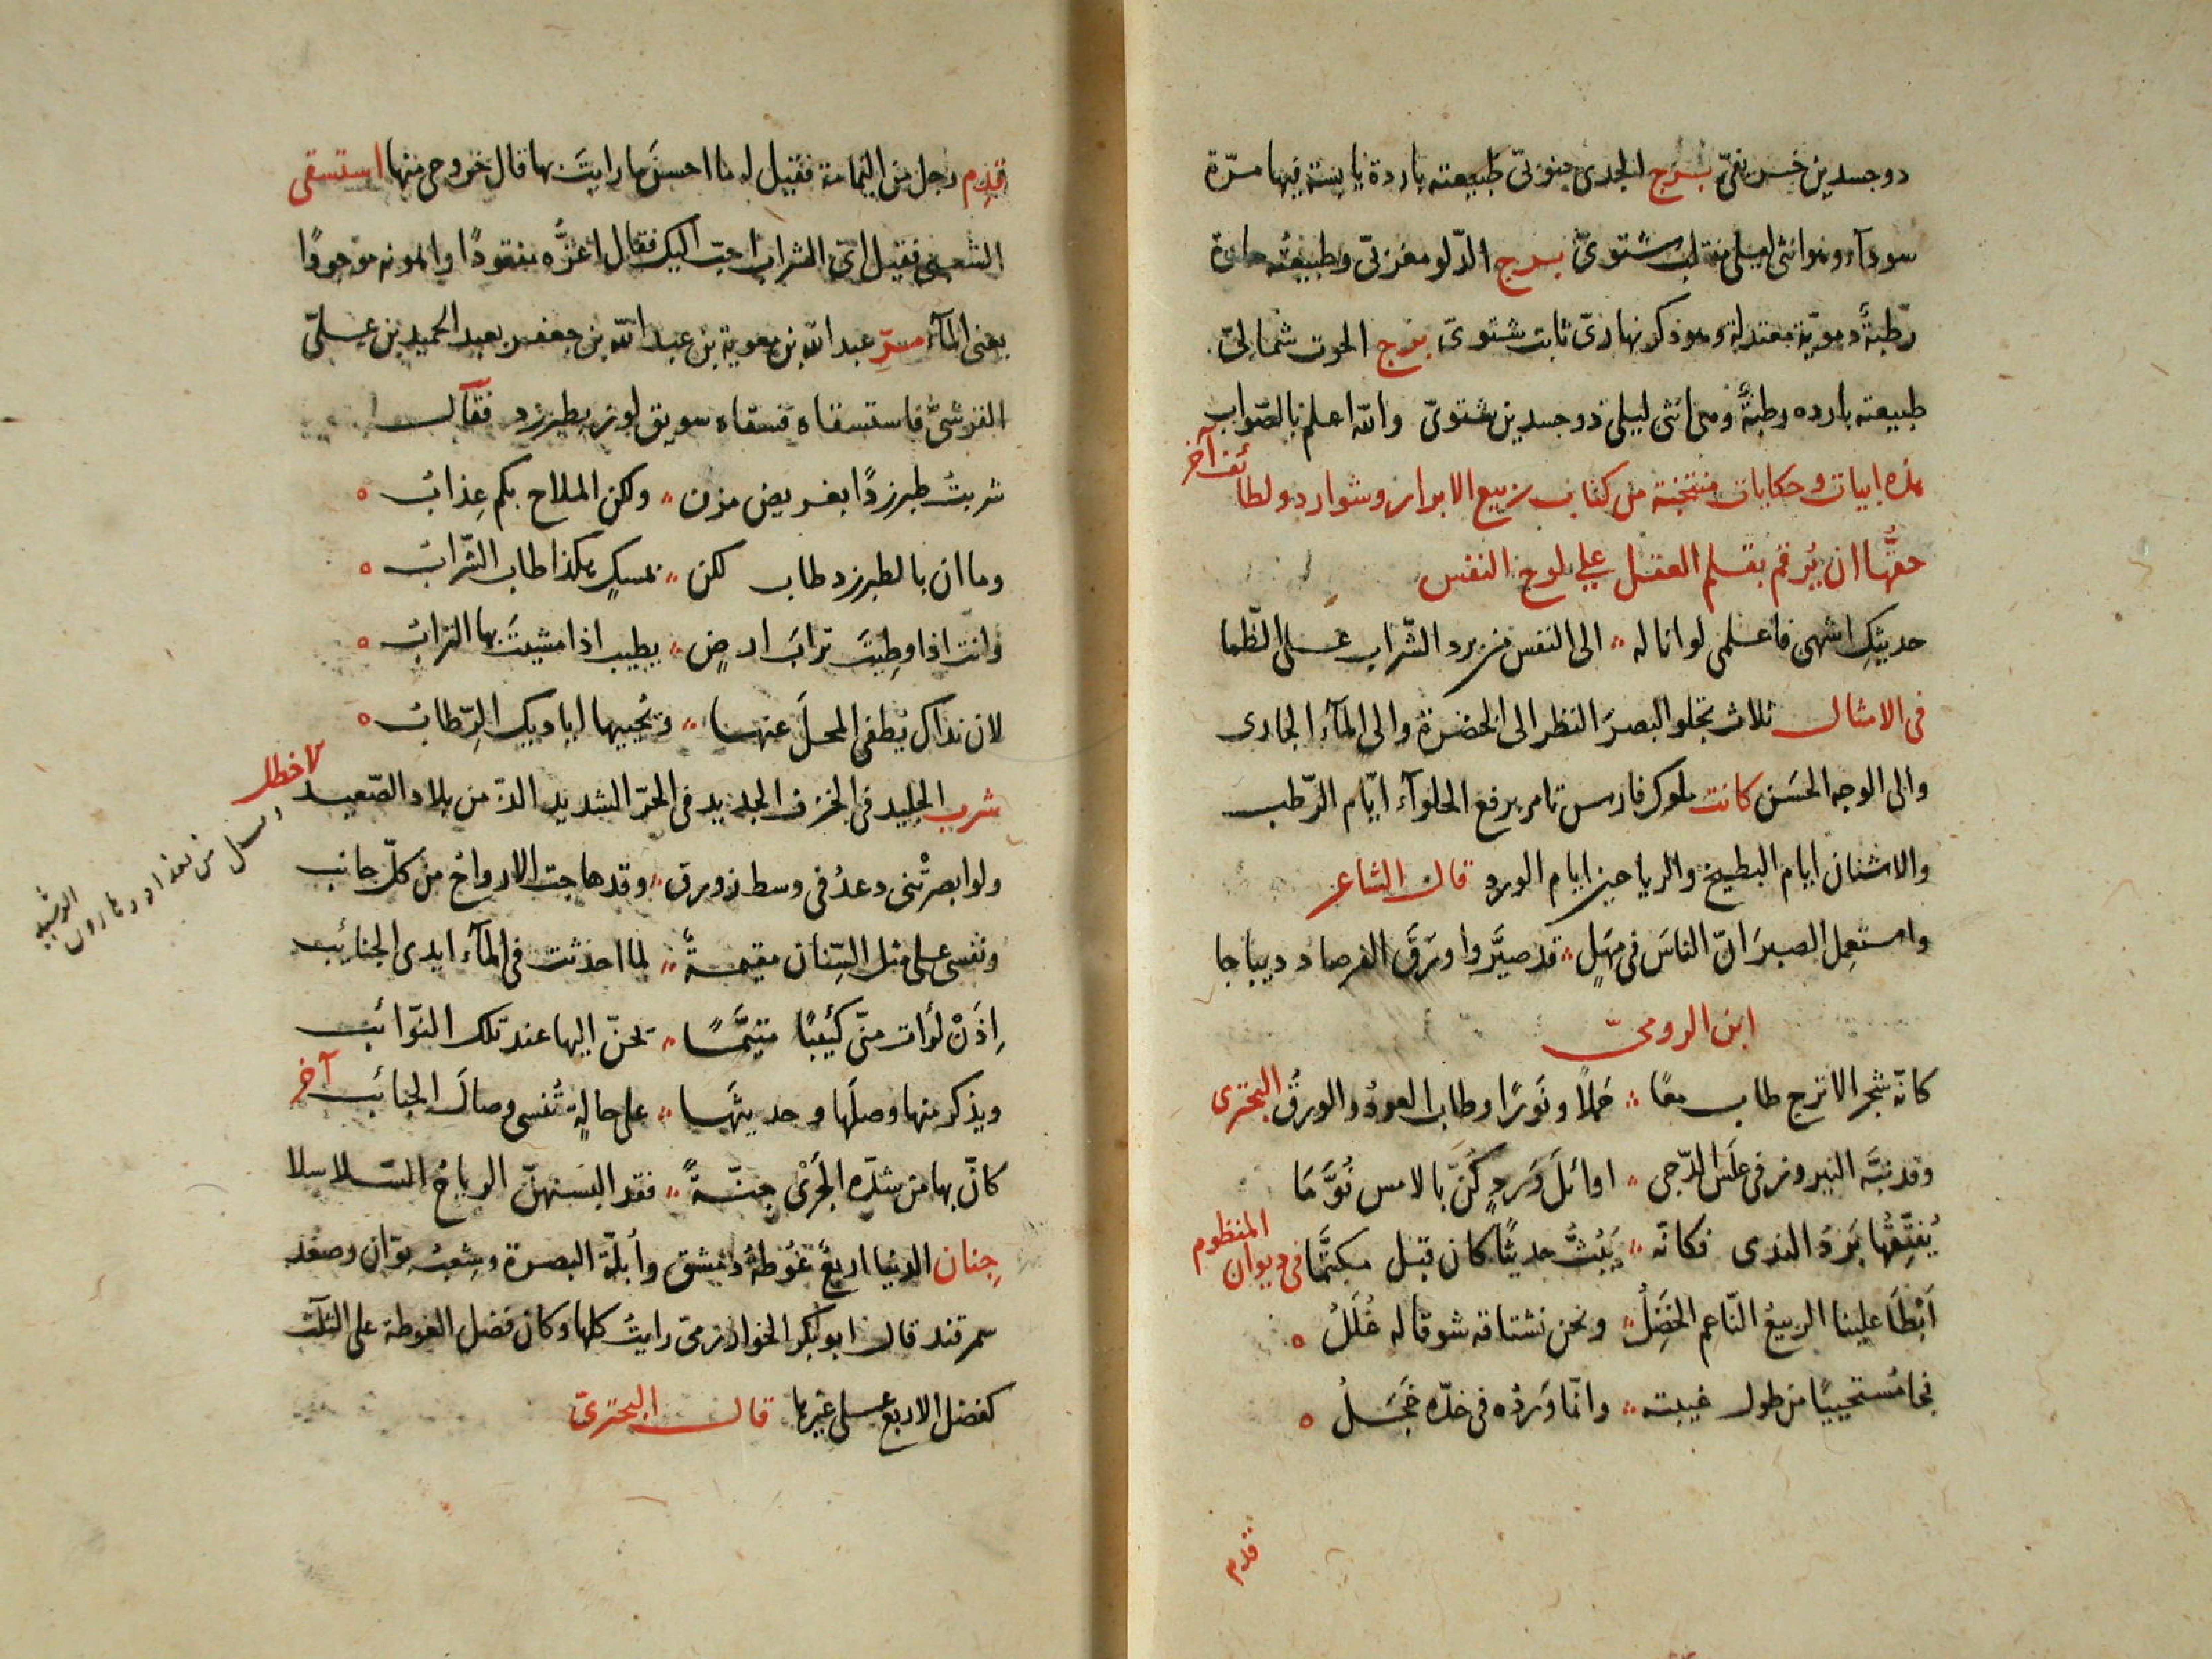 دو جسدين خريفىّ برج الجدى جنوبىّ طبيعته باردة يابسة فيها مرّة
سودآء وهو انثى ليلى منقلب شتوىّ برج الدّلو مغربىّ وطبيعته حارة
رطبة دمويّة معتدلة وهو ذكر نهارىّ ثابت شتوىّ برج الحوت شمالىّ
طبيعته بارده رطبةٌ ومى انثى ليلى ذو جسدين شتوىّ والله اعلم بالصّواب
هذه ابيات وحكايات منتخبة من كتاب ربيع الابرار وشوارد ولطائف آخر
حقّها ان يُرقم بقلم العقل على لوح النفس
حديثكِ اشهى فاعلمى لو اناله الى النفس من برد الشّراب على الظّما
فى الامثال ثلاث تجلو البصرَ النظر الى الخضرة والى المآء الجارى
والى الوجه الحَسَن كانت ملوك فارس تامر برفع الحلوآء ايّام الرّطب
والاشنان ايام البطيخ والرياحين ايام الورد قال الشاعر
واستعمِل الصبرَ انّ الناسَ فى مهَلٍ قد صيَّروا ورَقَ الفرصاد ديباجا
ابن الرومىّ
كانّه شجر الاترج طاب معًا حَملًا ونَورًا وطاب العودُ والورقُ البحترى
وقد نبَّه النيروز فى غلَس الدّجى اوائلَ وَردٍ كُنّ بالامس نُوَّمَا
يُفتِّقُها بَردُ الندى فكانّه يَبُثُّ حديثًا كان قبل مكتَّمًا فى ديوان المنظوم
اَبْطَا علينا الربيعُ النّاعم الخَضِلُ ونحن نشتاقه شوقا له غُلَلُ
فجا مُستحييًا من طول غيبته وانّما وَردُه فى خدّه خَجَلُ
قدم
قدِم رجل من اليمامة فقيل له ما احسنَ ما رايتَ بها قال خروجى منها استسقى
الشعبى فقيل اىّ الشراب احبّ اليك فقال اعزُّه مفقودًا واهونه موجودًا
يعنى المآء مرّ عبد الله بن معوية بن عبد الله بن جعفر بعبد الحميد بن علىّ
القرشىّ فاستسقاه فسقاه سويق لوز بطبرزد فقال
شربتُ طبرزدًا بغريض مزن ولكن الملاح بكم عِذابُ
وما ان بالطبرزد طاب لكن بمسكٍ هكذا طاب الشّرابُ
وانت اذا وطِيتَ ترابَ ارضٍ يطيب اذا مشيتَ بها الترابُ
لان نداك يطفى المحلَ عنها وتُحييها اياديك الرِّطابُ
شرب الجليد فى الخزف الجديد فى الحرّ الشديد الذّ من بلاد الصّعيد لاخطل
ولو ابصرتْنى دعدُ فى وسط زورق وقد هاجت الارواحُ من كلّ جانب
ونفسى على مثل السّنان مقيمةٌ لما احدثت فى المآء ايدى الجنائب
اِذَنْ لرَأت منّى كئيبًا متيَّمًا تحنّ اليها عند تلك النّوائب
ويذكر منها وصلَها وحديثَها على حالةٍ تُنسى وصالَ الحبائب آخر
كانّ بها من شدّه الجَرْى جِنّةً فقد البستهنّ الرياحُ السّلاسلا
جِنان الدنيا اربعٌ غُوطةُ دمشق وأبلّة البصرة وشِعبُ بوّان وصغد
سمرقند قال ابو بكر الخوارزمىّ رايتُ كلها وكان فضل الغوطة على الثلث
كفضل الاربع على غيرها قال البحترىّ